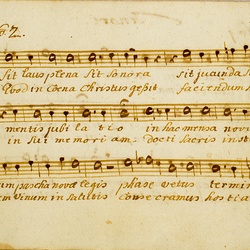 62.
Sit laus plena Sit Sonora Sit jucunda
Quod in Coena Christus gessit faciendum
mentis jubi la tio in hac mensa novi
in sui memori am. Docti sacris inst
um pascha novae legis phase vetus termi
em vinum in salutis conse cramus hostia